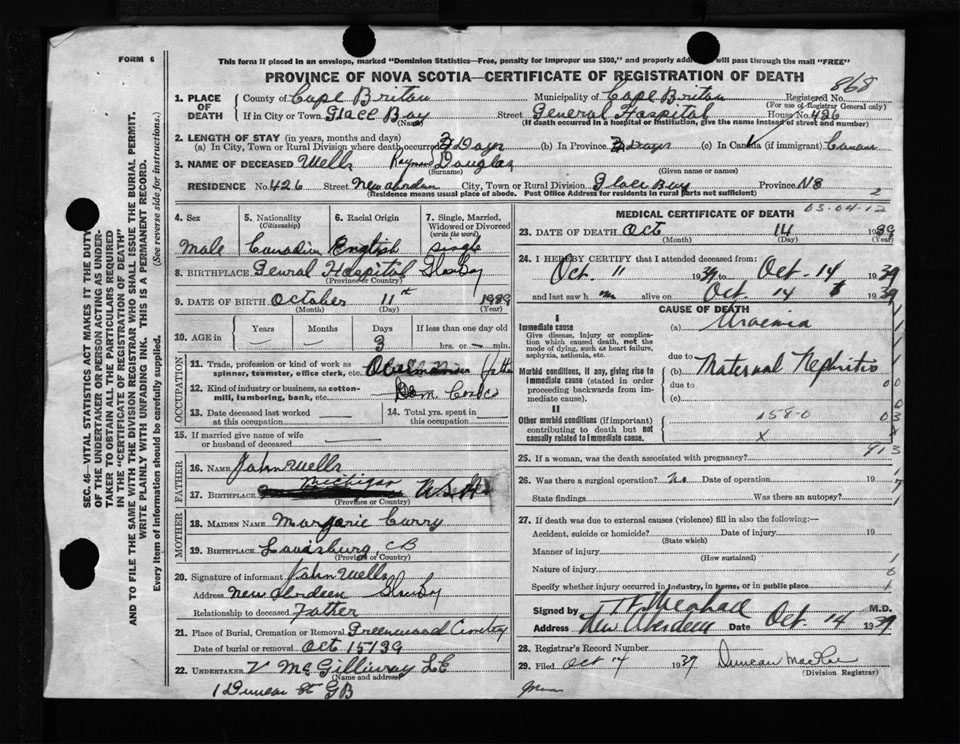 FORM 6
This form if placed in an envelope, marked "Dominion Statistics—Free, penalty for improper use $300," and properly will pass through the mail "FREE"
PROVINCE OF NOVA SCOTIA—CERTIFICATE OF REGISTRATION OF DEATH
868
1. PLACE OF DEATH
County of Cape Briton Municipality of Cape Briton Registered No.
(For use of Registrar General only)
If in City or Town Glace Bay Street General Hospital House No. 426
(Name) (If death occurred in a hospital or institution, give the name instead of street and number)
2. LENGTH OF STAY (in years, months and days)
(a) In City, Town or Rural Division where death occurred 3 Days (b) In Province 3 Days (c) In Canada (if immigrant)
3. NAME OF DECEASED Wells Raymond Douglas
(Surname) (Given name or names)
RESIDENCE No. 426 Street New aberdeen City, Town or Rural Division Glace Bay Province NS 2
(Residence means usual place of abode. Post Office Address for residents in rural parts not sufficient)
4. Sex
5. Nationality (Citizenship)
6. Racial Origin
7. Single, Married, Widowed or Divorced (write the word)
Male Canadian English single
8. BIRTHPLACE General Hospital Glace Bay
(Province or Country)
9. DATE OF BIRTH October 11th 1939
(Month) (Day) (Year)
10. AGE in Years Months Days If less than one day old
3 hrs. or min.
OCCUPATION
11. Trade, profession or kind of work as spinner, teamster, office clerk, etc.
12. Kind of industry or business, as cotton-mill, lumbering, bank, etc. Dom
13. Date deceased last worked at this occupation
14. Total yrs. spent in this occupation
15. If married give name of wife or husband of deceased
FATHER
16. Name John Wells
17. Birthplace Michigan U.S.A
(Province or Country)
MOTHER
18. Maiden Name Marjorie Curry
19. Birthplace Louisburg, CB
(Province or Country)
20. Signature of informant John Wells
Address New Aberdeen Glace Bay
Relationship to deceased Father
21. Place of Burial, Cremation or Removal Greenwood Cemetry
Date of burial or removal Oct 15/39
22. UNDERTAKER V McGillivray
(Name and address)
1 Duncan St GB
MEDICAL CERTIFICATE OF DEATH
03-04-12
23. DATE OF DEATH Oct 14 1939
(Month) (Day) (Year)
24. I HEREBY CERTIFY that I attended deceased from:
Oct. 11 1939 to Oct-14 1939
and last saw h m alive on Oct. 14 1939
CAUSE OF DEATH
I
Immediate cause (a) Uraemia
Give disease, injury or complication which caused death, not the mode of dying, such as heart failure, asphyxia, asthenia, etc.
due to
Morbid conditions, if any, giving rise to immediate cause (stated in order proceeding backwards from immediate cause).
(b) Maternal Nephritis
due to
(c)
II
Other morbid conditions (if important) contributing to death but not causally related to immediate cause.
158-0
x
25. If a woman, was the death associated with pregnancy?
913
26. Was there a surgical operation? No Date of operation 19
State findings Was there an autopsy?
27. If death was due to external causes (violence) fill in also the following:—
Accident, suicide or homicide? Date of injury 19
(State which)
Manner of injury
(How sustained)
Nature of injury
Specify whether injury occurred in industry, in home, or in public place
Signed by M.D.
Address New Aberdeen Date Oct. 14 1939
28. Registrar's Record Number
29. Filed Oct 14 1939 Duncan
(Division Registrar)
SEC. 46—VITAL STATISTICS ACT MAKES IT THE DUTY OF THE UNDERTAKER OR PERSON ACTING AS UNDERTAKER TO OBTAIN ALL THE PARTICULARS REQUIRED IN THE "CERTIFICATE OF REGISTRATION OF DEATH" AND TO FILE THE SAME WITH THE DIVISION REGISTRAR WHO SHALL ISSUE THE BURIAL PERMIT.
WRITE PLAINLY WITH UNFADING INK. THIS IS A PERMANENT RECORD.
Every item of information should be carefully supplied. (See reverse side for instructions.)